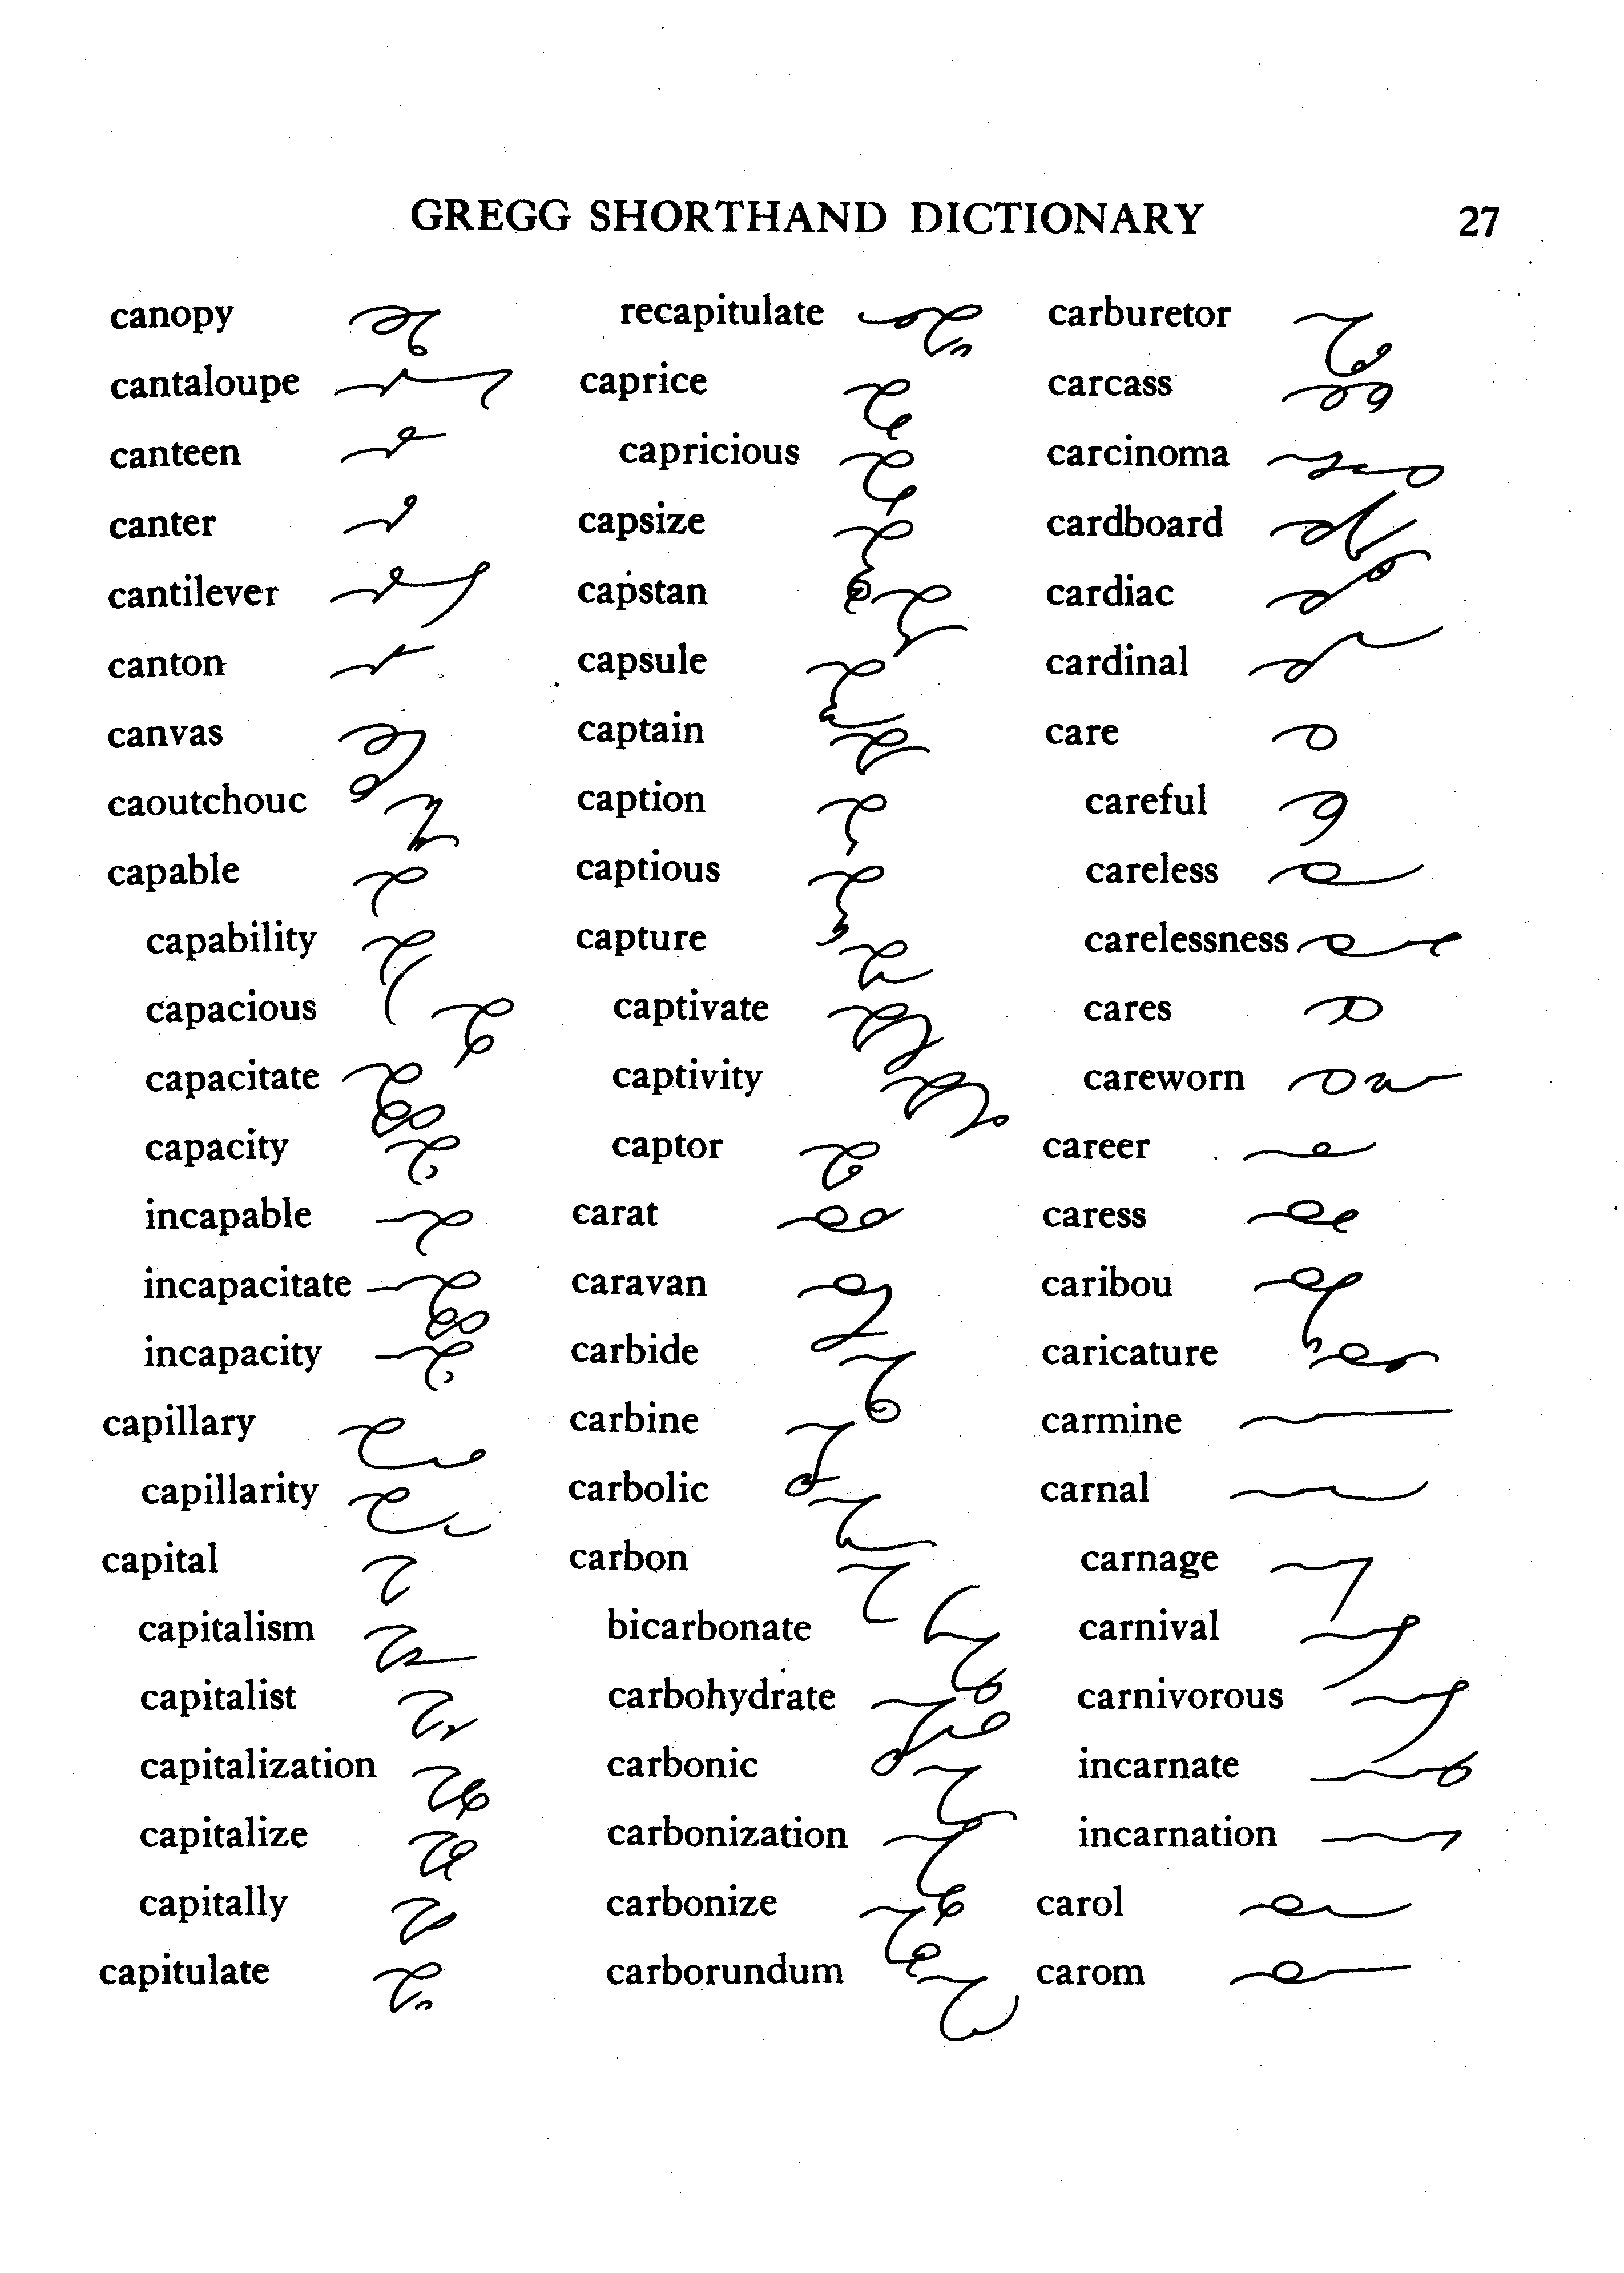 GREGG SHORTHAND DICTIONARY 27
canopy
cantaloupe
canteen
canter
cantilever
canton
canvas
caoutchouc
capable
capability
capacious
capacitate
capacity
incapable
incapacitate
incapacity
capillary
capillarity
capital
capitalism
capitalist
capitalization
capitalize
capitally
capitulate
recapitulate
caprice
capricious
capsize
capstan
capsule
captain
caption
captious
capture
captivate
captivity
captor
carat
caravan
carbide
carbine
carbolic
carbon
bicarbonate
carbohydrate
carbonic
carbonization
carbonize
carborundum
carburetor
carcass
carcinoma
cardboard
cardiac
cardinal
care
careful
careless
carelessness
cares
careworn
career
caress
caribou
caricature
carmine
carnal
carnage
carnival
carnivorous
incarnate
incarnation
carol
carom